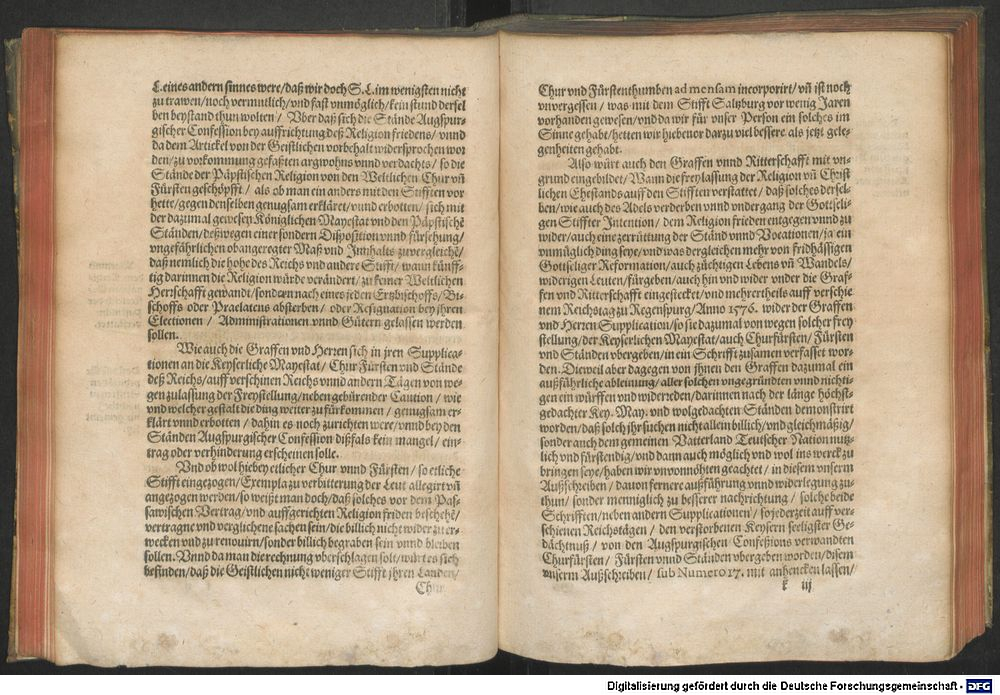 L. eines andern sinnes were/daß wir doch S. L. im wenigsten nicht
zu trawen/noch vermutlich/vnd fast vnmöglich/kein stund dersel
ben beystand thun wolten / Vber daß sich die Stände Augspur-
gischer Confession bey auffrichtung deß Religion friedens/ vnnd
da dem Artickel von der Geistlichen vorbehalt widersprochen wor
den/zu vorkommung gefaßten argwohns vnnd verdachts/ so die
Stände der Päpstischen Religion von den Weltlichen Chur vñ
Fürsten geschöpfft / als ob man ein anders mit den Stifften vor
hette/gegen denselben genugsam erkläret/vnnd erbotten/ sich mit
der dazumal gewesen Königlichen Mayestat vnd den Päpstischẽ
Ständen/deßwegen einer sondern Disposition vnnd fürsehung/
vngefährlichen obangeregter Maß vnd Innhalts zuvergleichẽ/
daß nemlich die hohe des Reichs vnd andere Stifft/ wann künff-
tig darinnen die Religion würde verändert/ zu keiner Weltlichen
Herrschafft gewandt/sondern nach eines jeden Ertzbischoffs/Bi-
schoffs oder Praelatens absterben / oder Resignation bey jhren
Electionen / Administrationen vnnd Gütern gelassen werden
sollen.
Wie auch die Graffen vnd Herren sich in jren Supplica-
tionen an die Keyserliche Mayestat / Chur Fürsten vnd Stände
deß Reichs/auff verschinen Reichs vnnd andern Tägen von we-
gen zulassung der Freystellung/neben gebürender Caution / wie
vnd welcher gestalt die ding weiter zu fürkommen / genugsam er-
klärt vnnd erbotten / dahin es noch zurichten were/vnnd bey den
Ständen Augspurgischer Confession dißfals kein mangel/ ein-
trag oder verhinderung erscheinen solle.
Vnd ob wol hiebey etlicher Chur vnnd Fürsten / so etliche
Stifft eingezogen/Exempla zu verbitterung der Leut allegirt vñ
angezogen werden/so weißt man doch/daß solches vor dem Pas-
sawischen Vertrag/vnd auffgerichten Religion friden beschehẽ/
vertragne vnd verglichene sachen sein/die billich nicht wider zu er-
wecken vnd zu renouirn/sonder billich begraben sein vnnd bleiben
sollen. Vnnd da man die rechnung vberschlagen solt/würt es sich
befinden/daß die Geistlichen nicht weniger Stifft jhren Landen/
Chur
Chur vnd Fürstenthumben ad mensam incorporirt/ vñ ist noch
vnvergessen / was mit dem Stifft Saltzburg vor wenig Jaren
vorhanden gewesen/vnd da wir für vnser Person ein solches im
Sinne gehabt/hetten wir hiebevor darzu viel bessere als jetzt gele-
genheiten gehabt.
Also würt auch den Graffen vnnd Ritterschafft mit vn-
grund eingebildet/ Wann die freylassung der Religion vñ Christ
lichen Ehestands auff den Stifften verstattet / daß solches dersel-
ben/wie auch des Adels verderben vnnd vndergang der Gottseli-
gen Stiffter Intention / dem Religion frieden entgegen vnnd zu
wider/auch eine zerrüttung der Ständ vnnd Vocationen/ja ein
vnmüglich ding seye/vnd was dergleichen mehr von fridhässigen
Gottseliger Reformation/auch züchtigen Lebens vñ Wandels/
widerigen Leuten/fürgeben/auch hin vnd wider vnder die Graf-
fen vnd Ritterschafft eingestecket/vnd mehrertheils auff verschie
nem Reichstag zu Regenspurg/Anno 1576. wider der Graffen
vnd Herren Supplication/so sie dazumal von wegen solcher frey
stellung/der Keyserlichen Mayestat/auch Churfürsten/ Fürsten
vnd Ständen vbergeben/in ein Schrifft zusamen verfasset wor-
den. Dieweil aber dagegen von jhnen den Graffen dazumal ein
außführliche ableinung/aller solchen vngegründten vnnd nichti-
gen ein würffen vnd widerreden/darinnen nach der länge höchst-
gedachter Key. May. vnd wolgedachten Ständen demonstrirt
worden/daß solch jhr suchen nicht allein billich/vnd gleichmäßig/
sonder auch dem gemeinen Vatterland Teutscher Nation nutz-
lich vnd fürstendig/vnd dann auch möglich vnd wol ins werck zu
bringen seye/haben wir vnvonnöhten geachtet / in diesem vnserm
Außschreiben / davon fernere außführung vnnd widerlegung zu-
thun/ sonder menniglich zu besserer nachrichtung / solche beide
Schrifften/neben andern Supplicationen/ so jederzeit auff ver-
schienen Reichstägen / den verstorbenen Keysern seeligster Ge-
dächtnuß / von den Augspurgischen Confeßions verwandten
Churfürsten/ Fürsten vnnd Ständen vbergeben worden/disem
vnserm Außschreiben/ sub Numero 17. mit anhencken lassen/
k iij
Digitalisierung gefördert durch die Deutsche Forschungsgemeinschaft - DFG